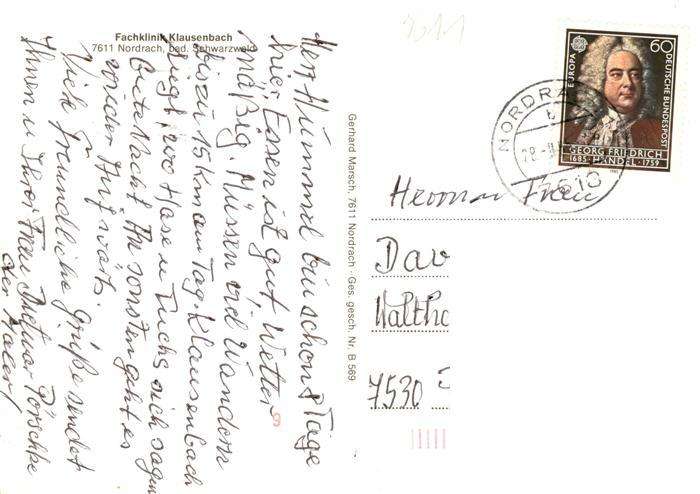 Fachklinik Klausenbach
7611 Nordrach, bad. Schwarzwald
Herr Hummel bin schon 8 Tage
hier. Essen ist gut Wetter
mäßig. Müssen viel Wandern
bis zu 15 km am Tag. Klausenbach
liegt, wo Hase u Fuchs sich sagen
Gute Nacht. Ansonsten geht es
wieder Aufwärts.
Viele freundliche Grüße sendet
Ihnen u Ihrer Frau Dietmar Pörschke
der Maler!
Gerhard Marsch, 7611 Nordrach · Ges. gesch. Nr. B 569
2011
EUROPA
60
DEUTSCHE BUNDESPOST
GEORG FRIEDRICH
1685 · HÄNDEL · 1759
NORDRA
b
7618
Herrn u Frau
Dav
Waltho
7530